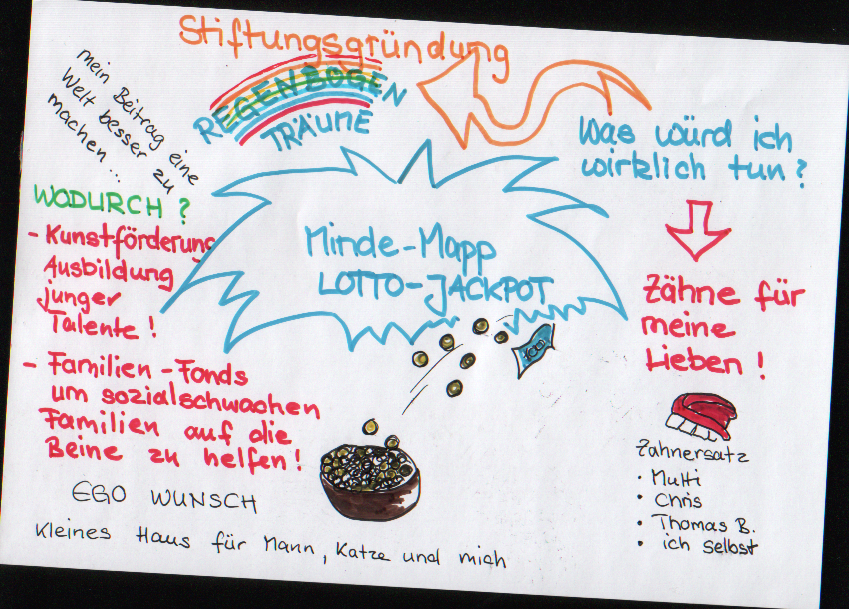 Stiftungsgründung
REGENBOGEN
TRÄUME
mein Beitrag eine
Welt besser zu
machen...
Was würd ich
wirklich tun?
Minde-Mapp
LOTTO-JACKPOT
100
WODURCH?
- Kunstförderung
Ausbildung
junger
Talente!
- Familien-Fonds
um sozialschwachen
Familien auf die
Beine zu helfen!
Zähne für
meine
Lieben!
Zahnersatz
• Mutti
• Chris
• Thomas B.
• ich selbst
EGO WUNSCH
Kleines Haus für Mann, Katze und mich